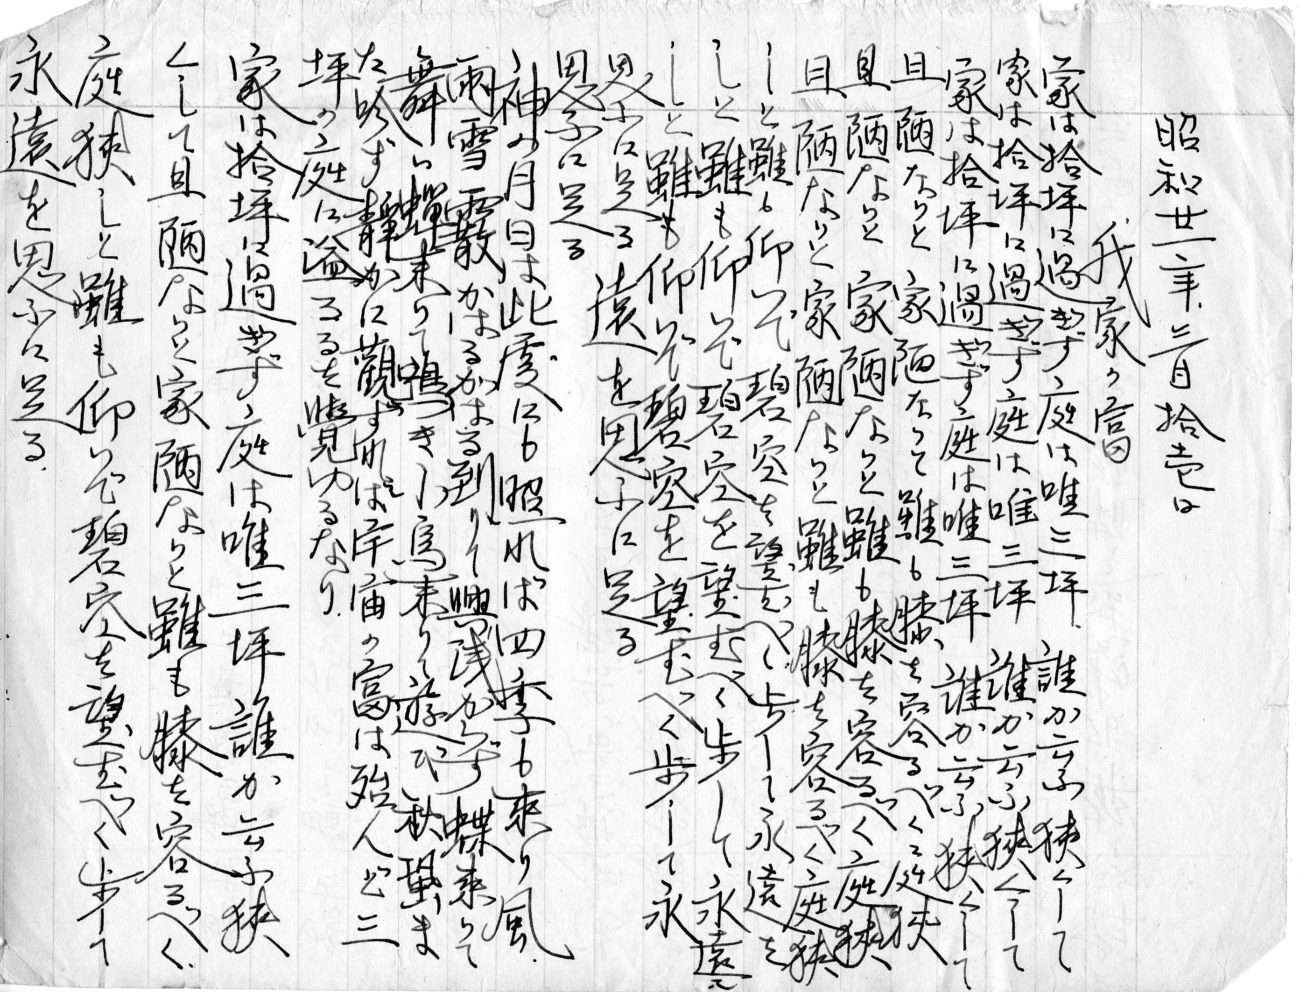 昭和廿一年三月拾壱日
我家の富
家は拾坪に過ぎず庭は唯三坪誰か云ふ狭くして
家は拾坪に過ぎず庭は唯三坪誰か云ふ狭くして
家は拾坪に過ぎず庭は唯三坪誰か云ふ狭くして
且陋なりと家陋なりと雖も膝を容るべく庭狭
且陋なりと家陋なりと雖も膝を容るべく庭狭
且陋なりと家陋なりと雖も膝を容るべく庭狭
しと雖も仰いで碧空を望むべく歩して永遠を
しと雖も仰いで碧空を望むべく歩して永遠を
しと雖も仰いで碧空を望むべく歩して永
思ふに足る遠を思ふに足る
思ふに足る
神の月日は此處にも照れば四季も来り風
雨雪霰かはるがはる到りて興浅からず蝶来りて
舞ひ蟬来りて鳴き小鳥来りて遊び秋蛩ま
た吟ず靜かに觀ずれば宇宙の富は殆んど三
坪の庭に溢るるを覺ゆるなり
家は拾坪に過ぎず庭は唯三坪誰か云ふ狭
くして且陋なりと家陋なりと雖も膝を容るべく
庭狭しと雖も仰いで碧空を望むべく歩して
永遠を思ふに足る